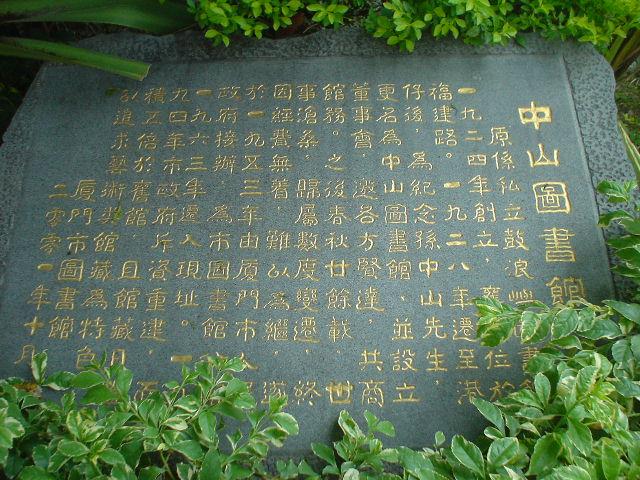 中山圖書館
原係私立鼓浪嶼圖書
一九二四年創立，舊址位於
福建路。一九二八年遷至港
仔後，為紀念孫中山先生，
更名為中山圖書館，並設立
董事會，邀各方賢達，共商
館務。之後春秋廿餘載，世
事滄桑，歸屬數度變遷，終
因經費無着，難以為繼，遂
於一九五三年由廈門市人
政府接辦，為市圖書館
一九六三年遷入現址。一
九九四年市政府斥資重建，面
積五倍於舊館，且館藏日
以追求藝術類館藏為特色
廈門市圖書館
二零零一年十月